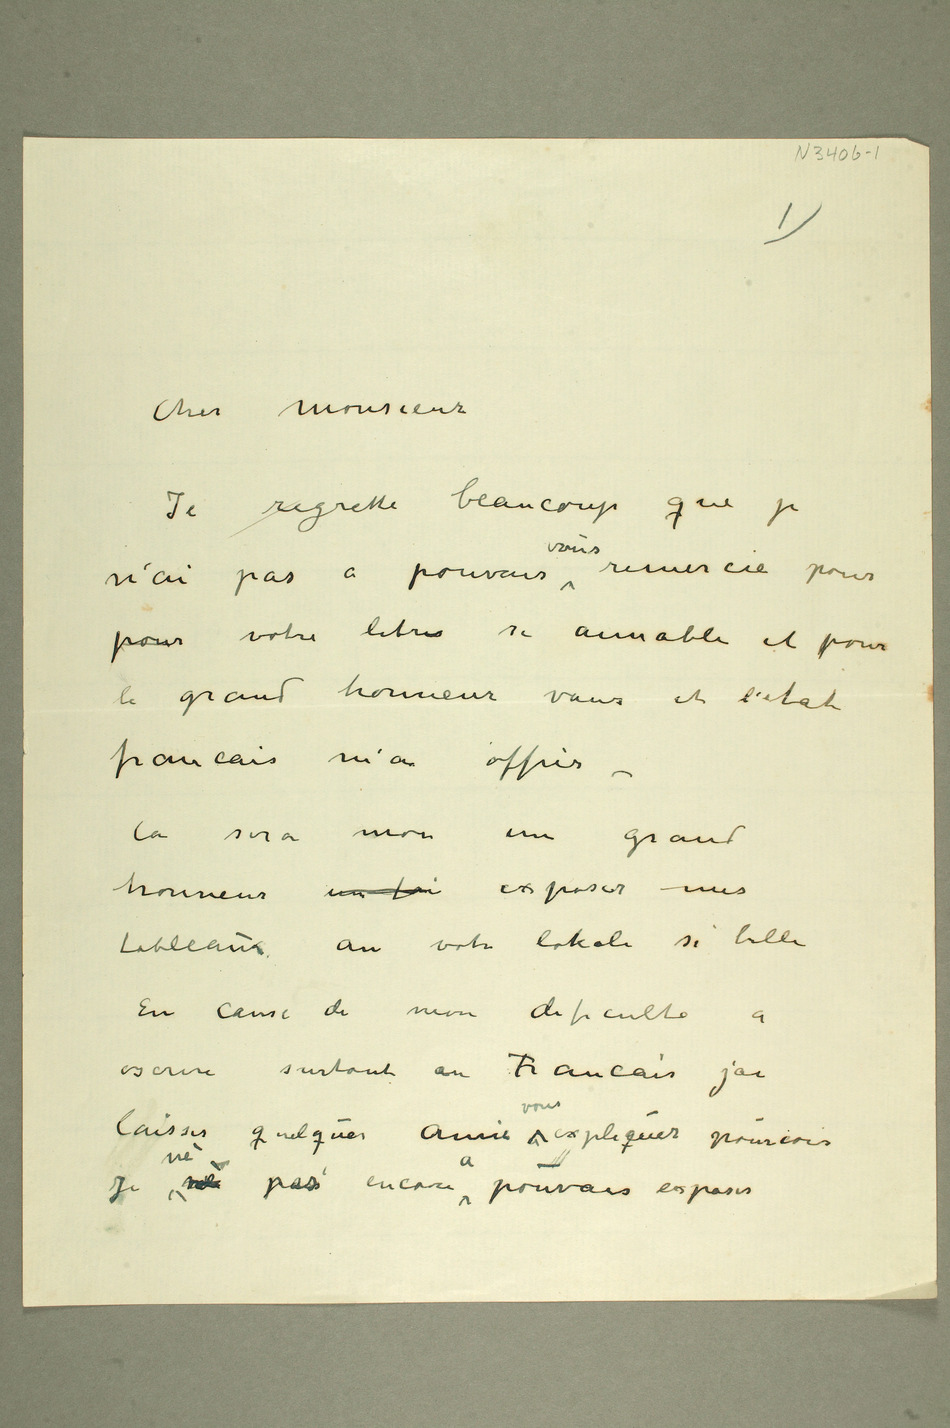 N3406-1
1)
Cher Monsieur
Je regrette beaucoup que je
n'ai pas a pouvais vous remercie pour
pour votre letres si aimable et pour
le grand honneur vous et l'etat
francais m'a offrir _
Ca sera moi un grand
honneur exposer mes
tableaux an votre lokale si belle
En cause de mon deficulte a
escrire surtout an Francais jai
laisser quelquer amie vous expliquer pourcoir
je ne pas encore a pouvais exposer